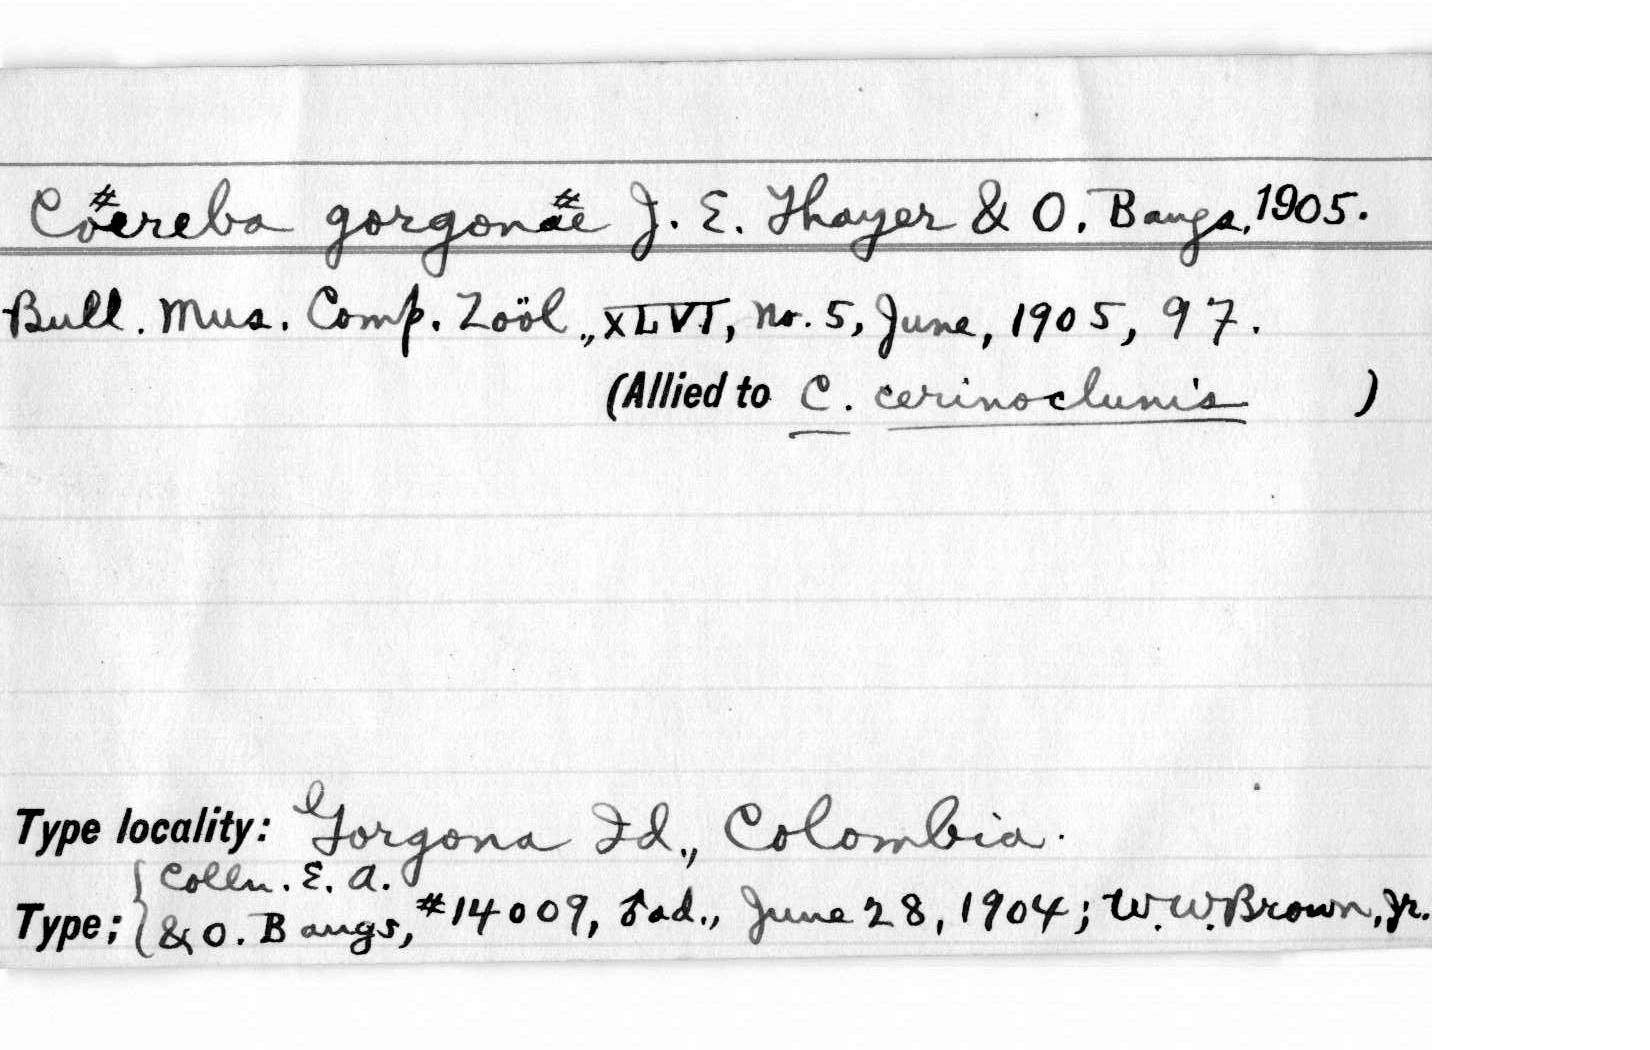 Coereba gorgonae J. E. Thayer & O. Bangs, 1905.
Bull. Mus. Comp. Zoöl., XLVI, No. 5, June, 1905, 97.
(Allied to C. cerinoclunis )
Type locality: Gorgona Id., Colombia.
Colln. E. A.
Type; & O. Bangs, #14009, ♂ ad., June 28, 1904; W. W. Brown, Jr.